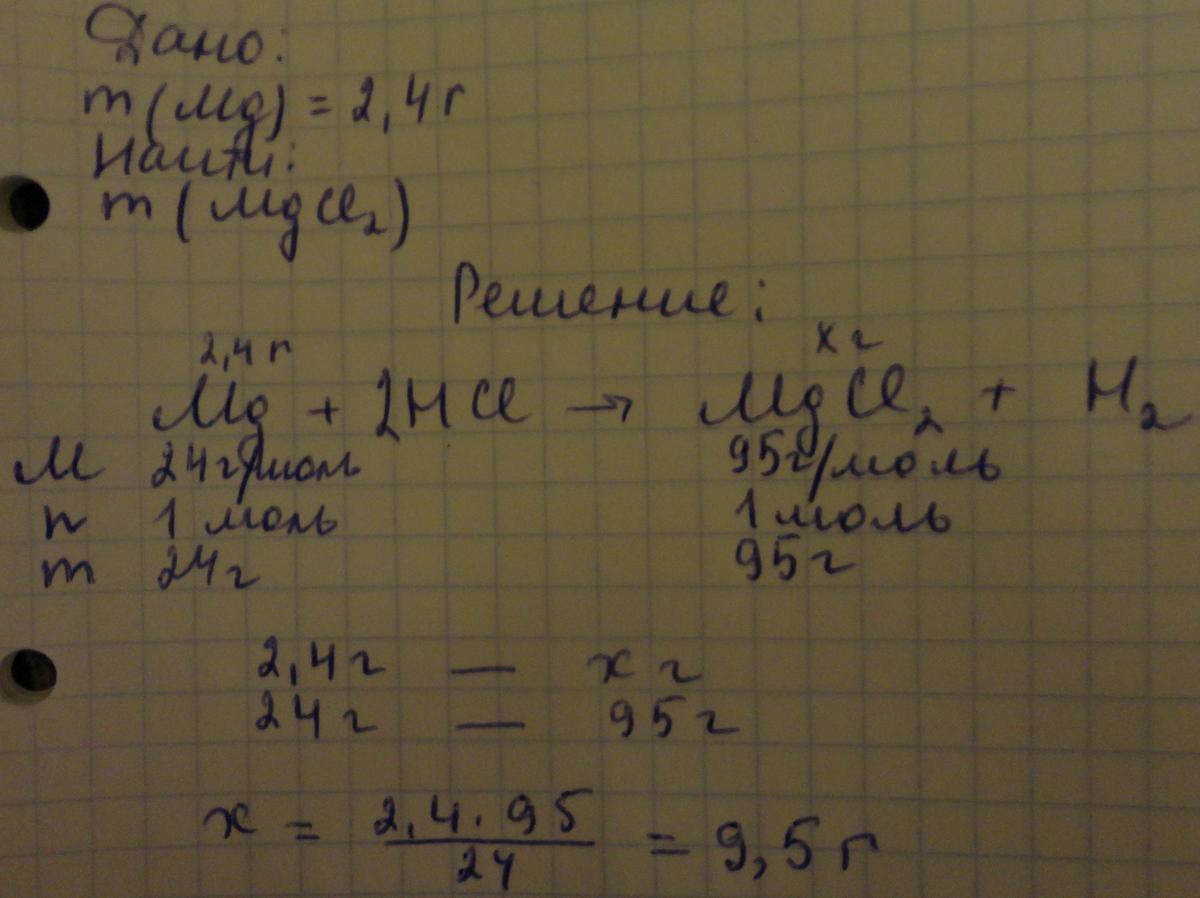 Дано:
m (Mg) = 2,4 г
Найти:
m (MgCl₂)
Решение:
2,4 г x г
Mg + 2HCl → MgCl₂ + H₂
M 24г/моль 95г/моль
n 1 моль 1 моль
m 24г 95г
2,4г — x г
24г — 95г
x = 2,4 · 95 / 24 = 9,5 г